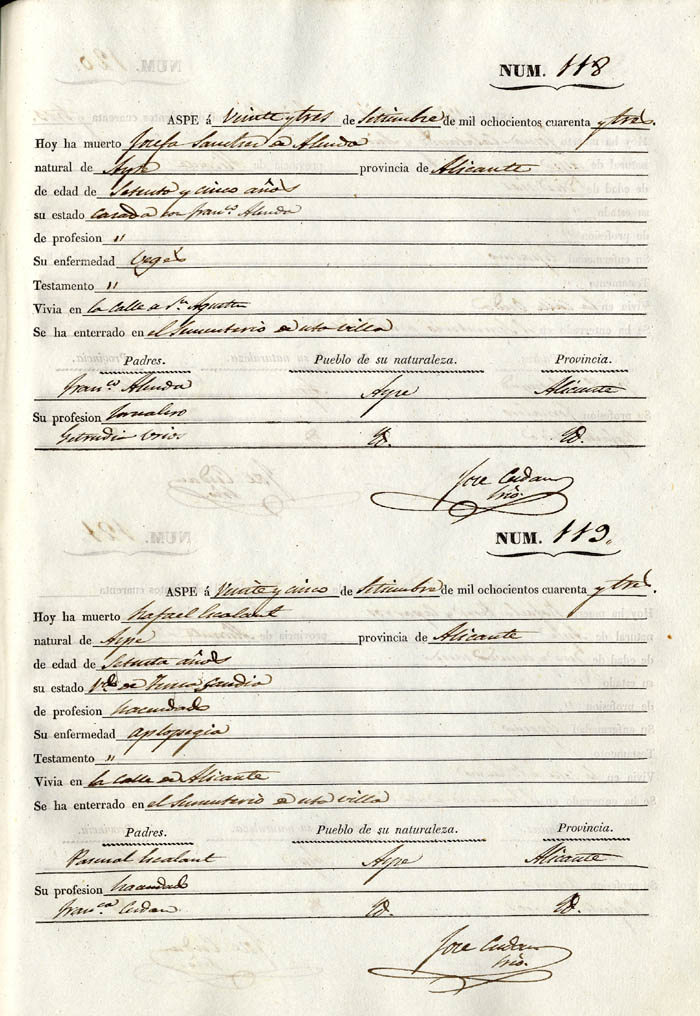 NUM. 118
ASPE á Veinte y tres de Setiembre de mil ochocientos cuarenta y tres.
Hoy ha muerto Josefa Sanchez de Alenda
natural de Aspe provincia de Alicante
de edad de Setenta y cinco años
su estado casada con Fran.co Alenda
de profesion "
Su enfermedad Veges
Testamento "
Vivia en la Calle de Sn. Agustin
Se ha enterrado en el Sementerio de esta villa
Padres. Pueblo de su naturaleza. Provincia.
Fran.co Alenda Aspe Alicante
Su profesion Jornalero
Getrudis Id. Id.
Jose Cerdan
Srio.
NUM. 119.
ASPE á Veinte y cinco de Setiembre de mil ochocientos cuarenta y tres.
Hoy ha muerto Rafael Escalant
natural de Aspe provincia de Alicante
de edad de Setenta años
su estado Vdo. de
de profesion hacendado
Su enfermedad aplopegia
Testamento "
Vivia en la Calle de Alicante
Se ha enterrado en el Sementerio de esta villa
Padres. Pueblo de su naturaleza. Provincia.
Pascual Escalant Aspe Alicante
Su profesion hacendado
Fran.ca Cerdan Id. Id.
Jose Cerdan
Srio.